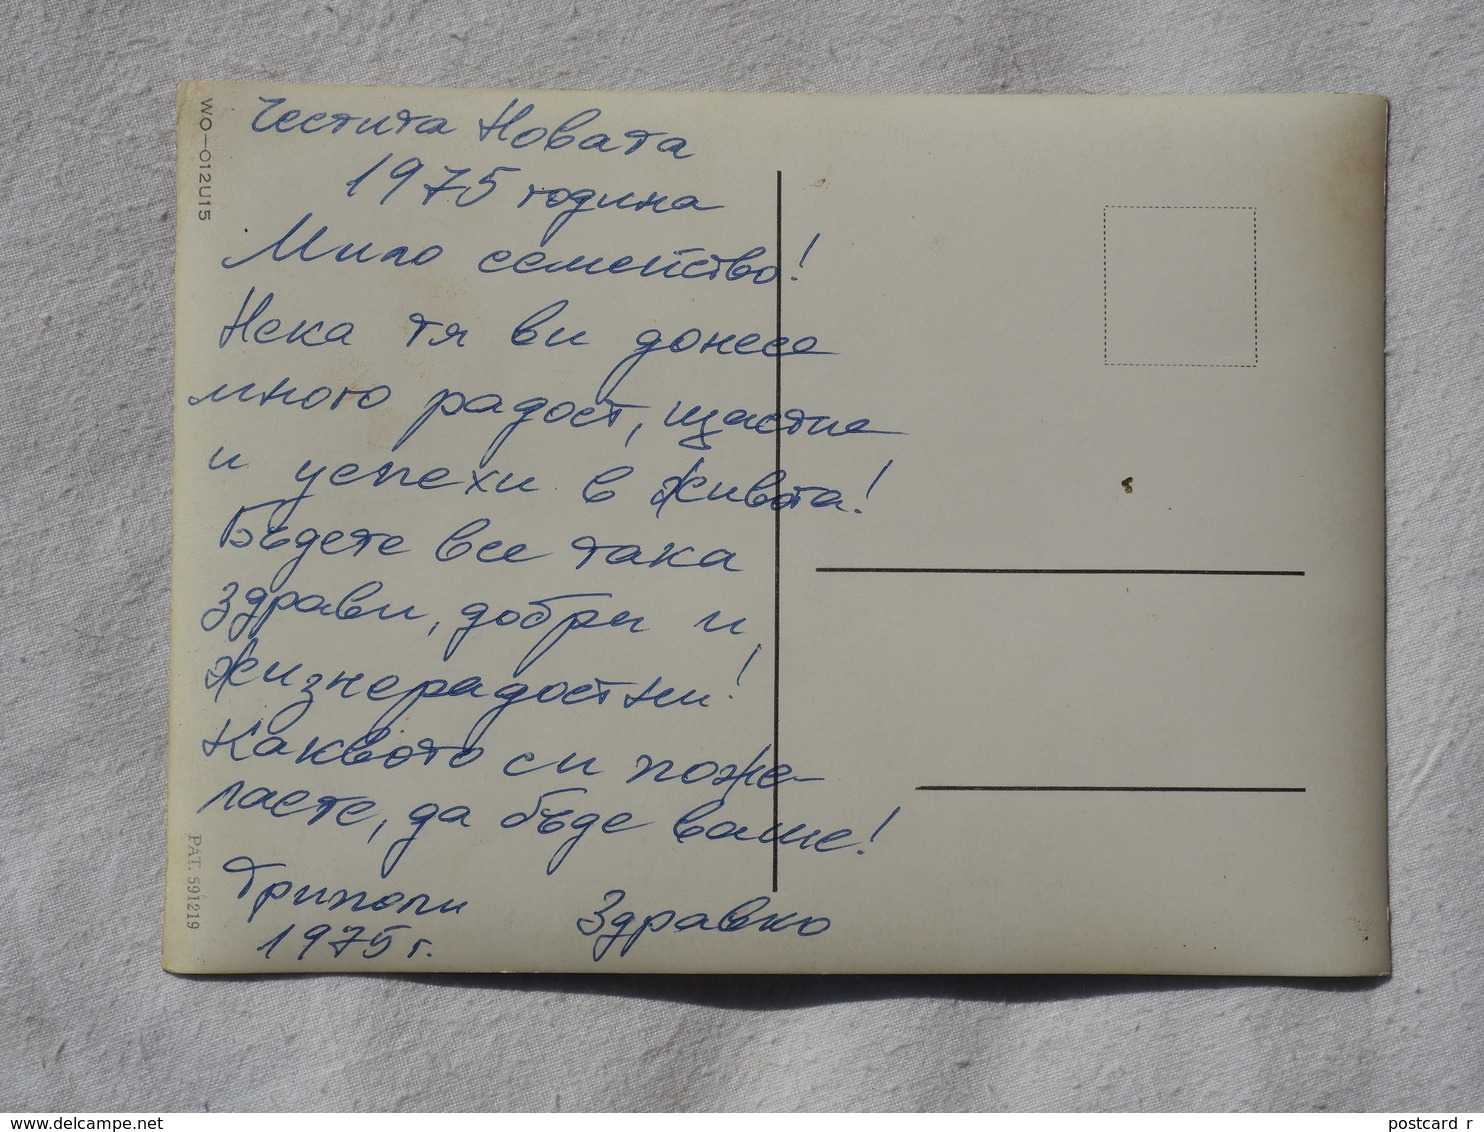 WO—012U15
Честита Новата
1975 година
Мило семейство!
Нека тя ви донесе
много радост, щастие
и успехи в живота!
Бъдете все така
здрави, добри и
жизнерадостни!
Каквото си поже-
лаете, да бъде ваше!
Триполи
Здравко
1975 г.
PAT. 591219
delcampe.net
postcard_r